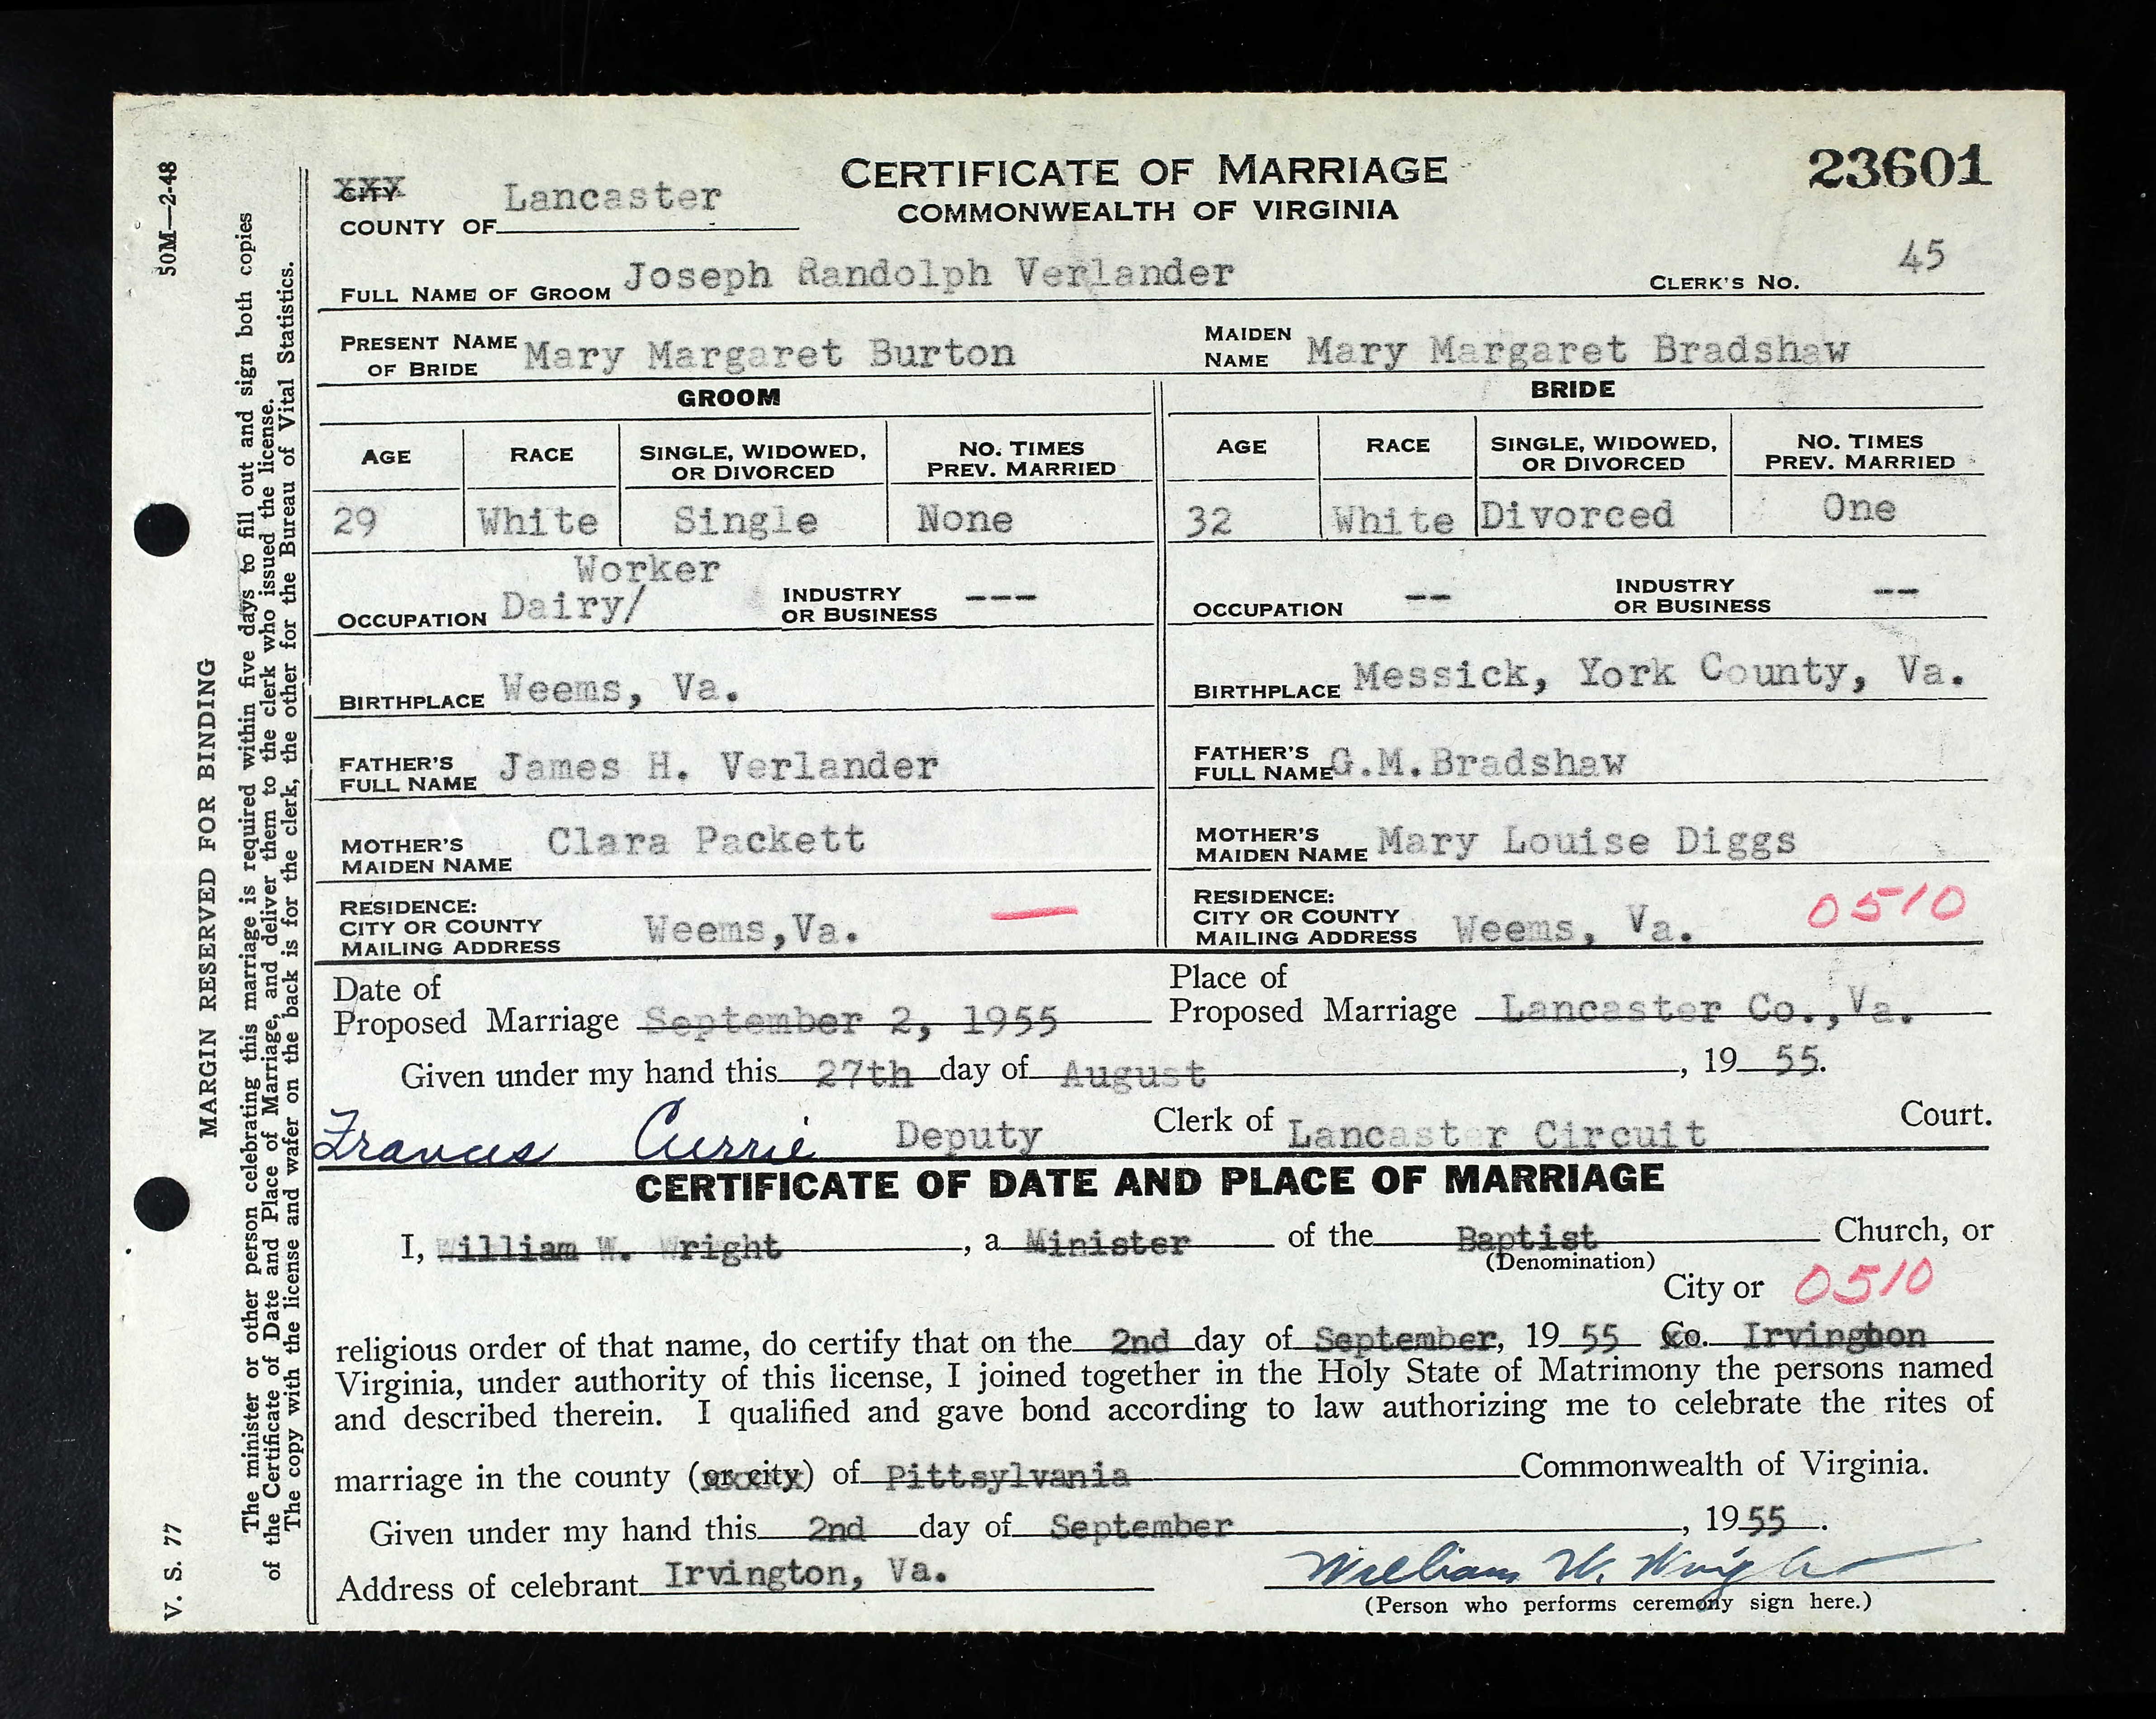 50M—2-48
MARGIN RESERVED FOR BINDING
The minister or other person celebrating this marriage is required within five days to fill out and sign both copies
of the Certificate of Date and Place of Marriage, and deliver them to the clerk who issued the license.
The copy with the license and wafer on the back is for the clerk, the other for the Bureau of Vital Statistics.
V. S. 77
CERTIFICATE OF MARRIAGE
COMMONWEALTH OF VIRGINIA
23601
XXX CITY
COUNTY OF Lancaster
FULL NAME OF GROOM Joseph Randolph Verlander CLERK'S NO. 45
PRESENT NAME OF BRIDE Mary Margaret Burton MAIDEN NAME Mary Margaret Bradshaw
GROOM BRIDE
AGE RACE SINGLE, WIDOWED, OR DIVORCED NO. TIMES PREV. MARRIED AGE RACE SINGLE, WIDOWED, OR DIVORCED NO. TIMES PREV. MARRIED
29 White Single None 32 White Divorced One
OCCUPATION Dairy/ Worker INDUSTRY OR BUSINESS --- OCCUPATION -- INDUSTRY OR BUSINESS --
BIRTHPLACE Weems, Va. BIRTHPLACE Messick, York County, Va.
FATHER'S FULL NAME James H. Verlander FATHER'S FULL NAME G.M.Bradshaw
MOTHER'S MAIDEN NAME Clara Packett MOTHER'S MAIDEN NAME Mary Louise Diggs
RESIDENCE: CITY OR COUNTY MAILING ADDRESS Weems,Va. — RESIDENCE: CITY OR COUNTY MAILING ADDRESS Weems, Va. 0510
Date of Proposed Marriage September 2, 1955 Place of Proposed Marriage Lancaster Co.,Va.
Given under my hand this 27th day of August, 19 55.
Frances Currie Deputy Clerk of Lancaster Circuit Court.
CERTIFICATE OF DATE AND PLACE OF MARRIAGE
I, William W. Wright, a Minister of the Baptist Church, or
(Denomination)
City or 0510
religious order of that name, do certify that on the 2nd day of September, 19 55 Co. Irvington
Virginia, under authority of this license, I joined together in the Holy State of Matrimony the persons named
and described therein. I qualified and gave bond according to law authorizing me to celebrate the rites of
marriage in the county (or city) of Pittsylvania Commonwealth of Virginia.
Given under my hand this 2nd day of September, 19 55.
Address of celebrant Irvington, Va. William W. Wright
(Person who performs ceremony sign here.)